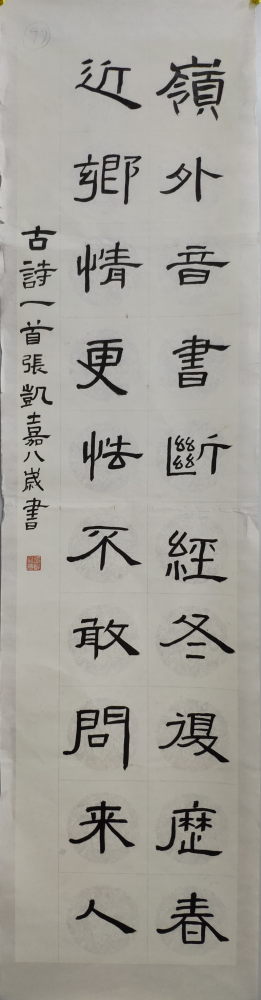 嶺外音書斷經冬復歷春
近鄉情更怯不敢問来人
古詩一首張凱嘉八歲書